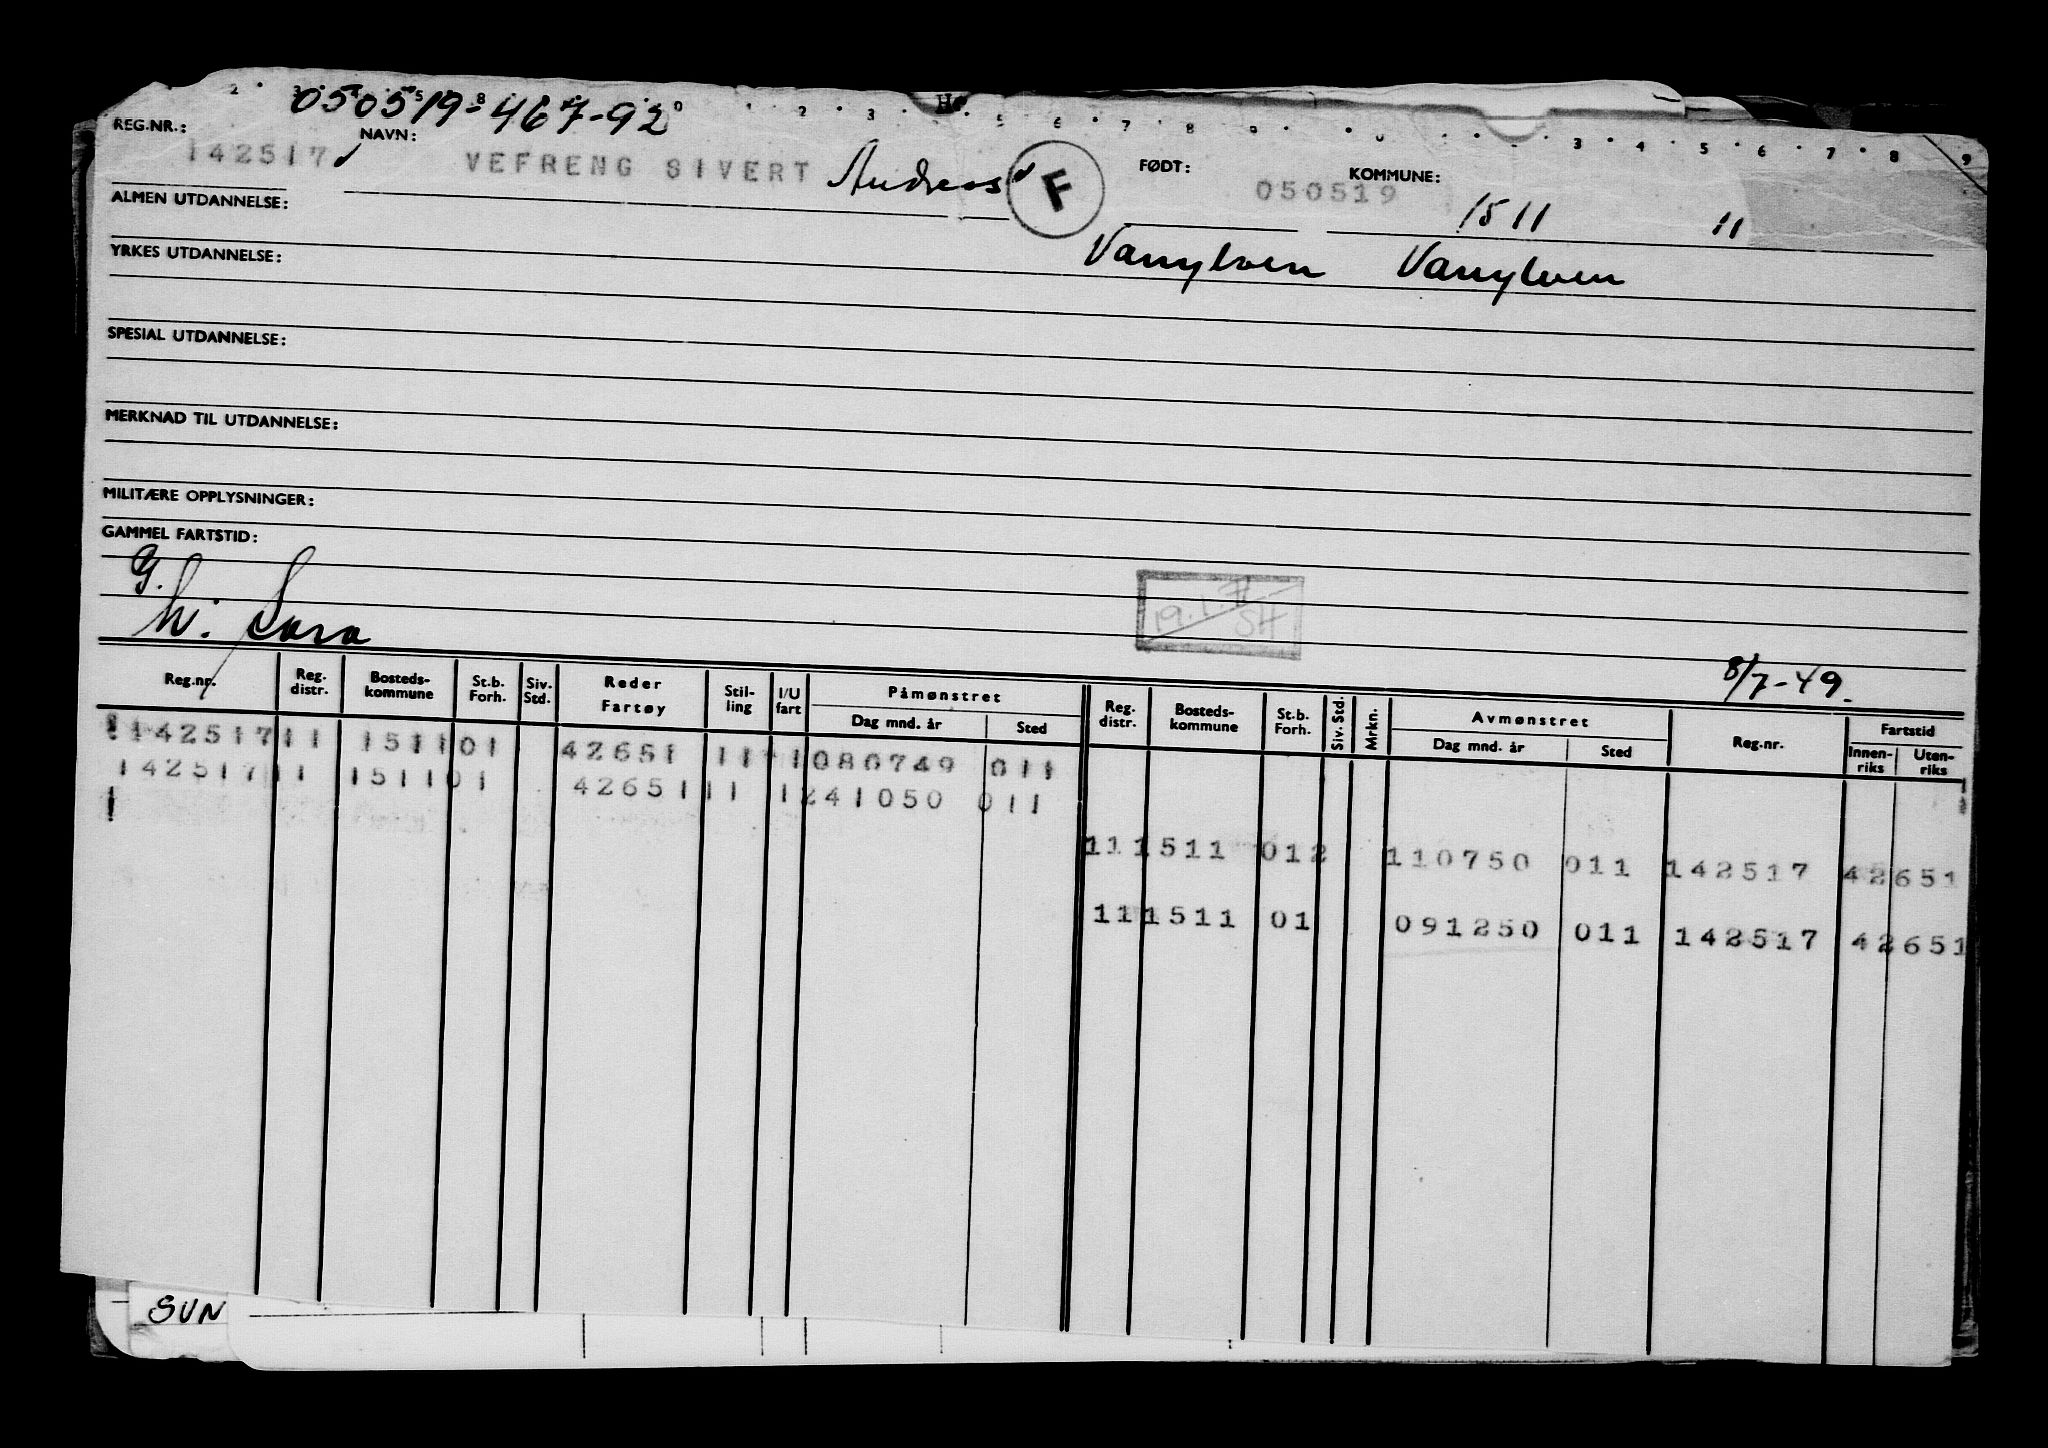 050519-467-92
REG.NR.: 142517 NAVN: VEFRENG SIVERT Andreas F FØDT: 050519 KOMMUNE: 1511 11
ALMEN UTDANNELSE:
YRKES UTDANNELSE: Vanylven Vanylven
SPESIAL UTDANNELSE:
MERKNAD TIL UTDANNELSE:
MILITÆRE OPPLYSNINGER:
GAMMEL FARTSTID:
G.
19.1.71 SH
8/7-49.
Reg.nr. Reg. distr. Bosteds-kommune St.b. Forh. Siv. Std. Reder Fartøy Stil-ling I/U fart Påmønstret Dag mnd. år Sted Reg. distr. Bosteds-kommune St.b. Forh. Siv. Std. Mrkn. Avmønstret Dag mnd. år Sted Reg.nr. Fartstid Innen-riks Uten-riks
142517 11 1511 01 42651 11 1 080749 011
142517 11 1511 01 42651 11 1 241050 011
11 1511 012 110750 011 142517 42651
11 1511 01 091250 011 142517 42651
SUN